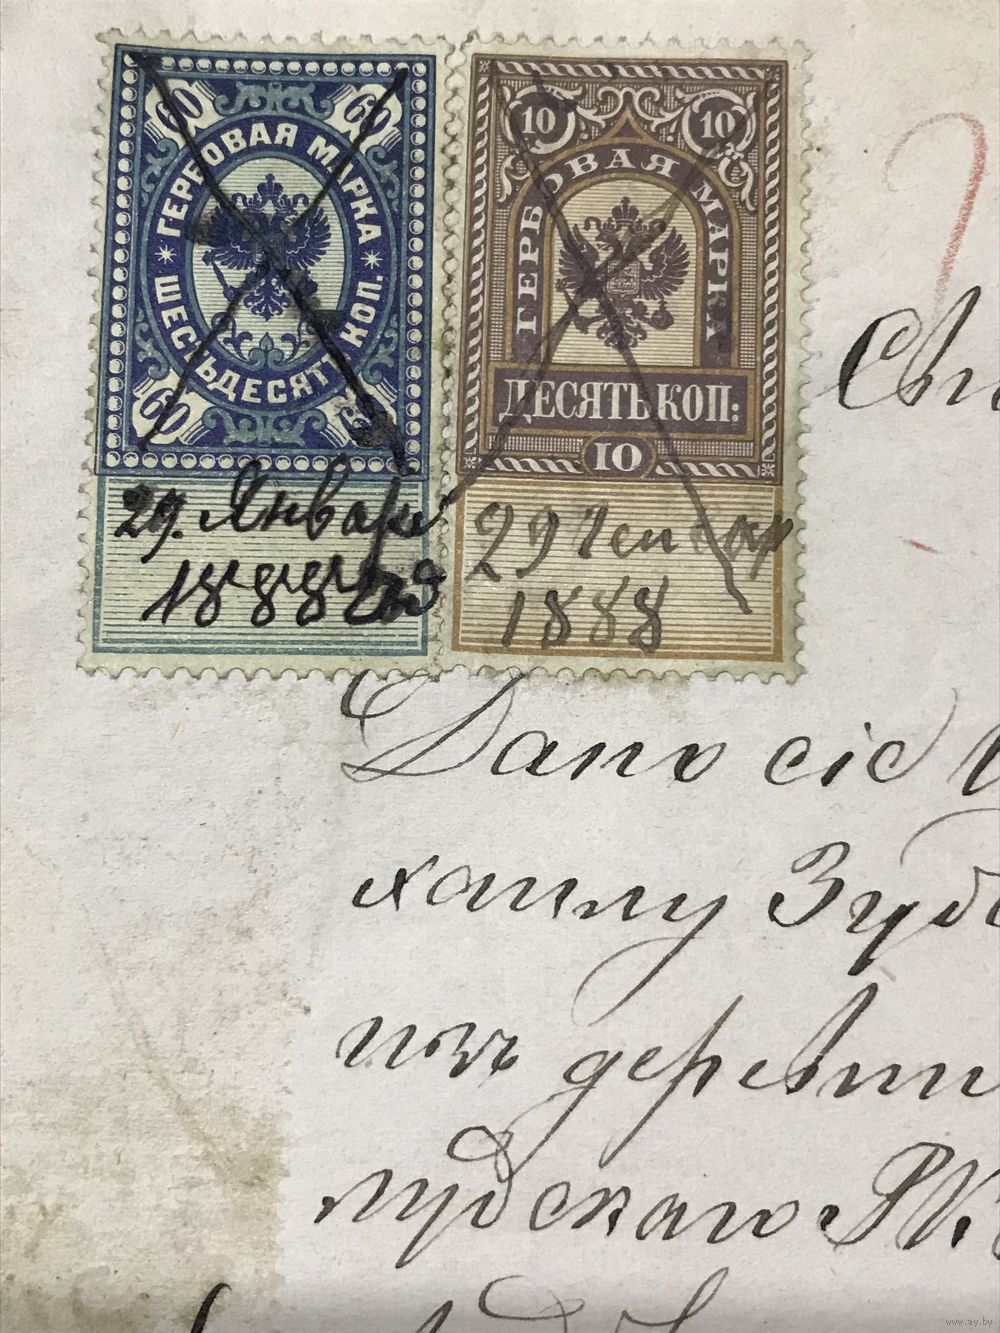 60 60
ГЕРБОВАЯ МАРКА
ШЕСТЬДЕСЯТ КОП.
60 60
29. Января
1888
10 10
ГЕРБОВАЯ МАРКА
ДЕСЯТЬ КОП:
10
29
1888
Дано сіе
хаилу Зуб
изъ деревни
лудскаго
www.ay.by